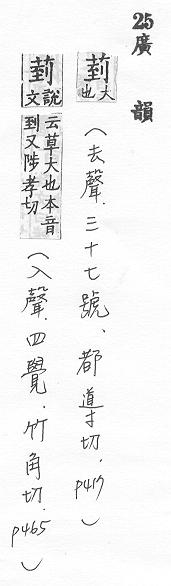 25廣韻
菿大也(去聲.三十七號、都導切.p417)
菿說文云草大也本音到又陟孝切(入聲.四覺.竹角切.p465)